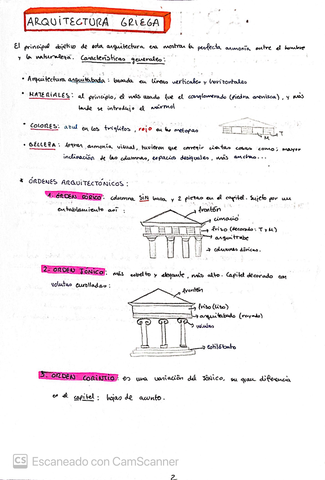 ARQUITECTURA GRIEGA
El principal objetivo de esta arquitectura era mostrar la perfecta armonía entre el hombre
y la naturaleza. Características generales:
· Arquitectura arquitrabada: basada en líneas verticales y horizontales
· MATERIALES: al principio, el más usado fue el conglomerado (piedra arenisca), y más
tarde se introdujo el mármol
· COLORES: azul en los triglifos, rojo en las metopas
M T
· BELLEZA: lograr armonía visual, tuvieron que corregir ciertas cosas como: mayor
inclinación de las columnas, espacios desiguales, más anchas...
* ÓRDENES ARQUITECTÓNICOS:
1. ORDEN DÓRICO: columna SIN basa y 2 piezas en el capitel. Sujeto por un
entablamento así:
frontón
cimacio
friso (decorado: T y M)
arquitrabe
columnas dóricas.
2. ORDEN JÓNICO: más esbelto y elegante, más alto. Capitel decorado con
volutas enrolladas:
frontón
friso (liso)
arquitrabado (rayado)
volutas
estilóbato
3. ORDEN CORINTIO es una variación del Jónico, su gran diferencia
en el capitel: hojas de acanto.
CS Escaneado con CamScanner
2